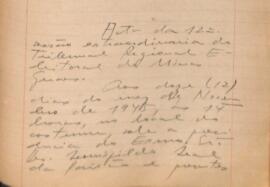 Acta da 122ª
sessão extraordinaria do
Tribunal Regional E-
leitoral de Minas
Geraes.
Aos doze (12)
dias do mez de Novem-
bro de 1945 ás 14
horas, no local do
costume, sob a presi-
dencia do Exmo. Sr.
Des.
da Paixão e presentes